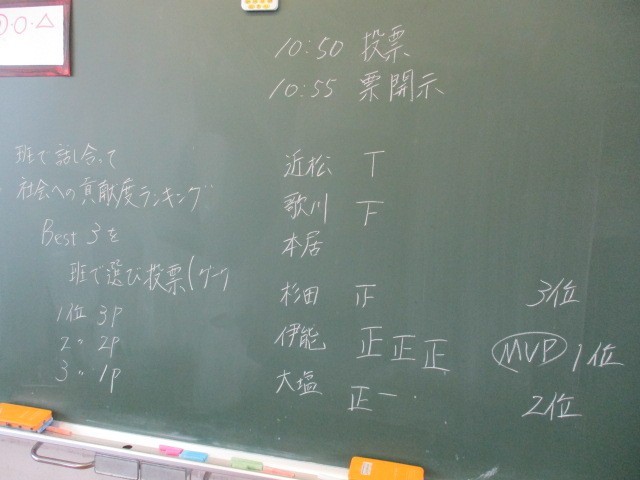 ・〇・△
10:50 投票
10:55 票開示
班で話し合って
社会への貢献度ランキング
Best 3を
班で選び投票(グーグ
1位 3P
2〃 2P
3〃 1P
近松 T
歌川 下
本居
杉田 正 3位
伊能 正正正 MVP 1位
大塩 正一 2位